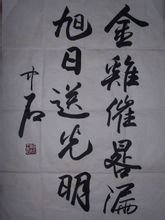 金雞催晷漏
旭日送光明
中石